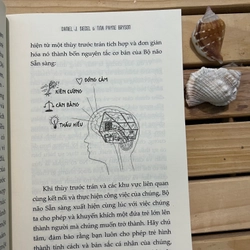 DANIEL J. SIEGEL & TINA PAYNE BRYSON
hiện từ một thùy trước trán tích hợp và đơn giản
hóa nó thành bốn nguyên tắc cơ bản của Bộ não
Sẵn sàng:
ĐỒNG CẢM
KIÊN CƯỜNG
CÂN BẰNG
THẤU HIỂU
Khi thùy trước trán và các khu vực liên quan
cùng kết nối và thực hiện công việc của chúng, Bộ
não Sẵn sàng xuất hiện cùng lúc với việc chúng
ta cho phép và khuyến khích một đứa trẻ lớn lên
thành người mà chúng muốn trở thành. Hãy chú
tâm, đảm bảo rằng bạn luôn cho phép trẻ hình
thành tính cách và bản sắc cá nhân của chúng,